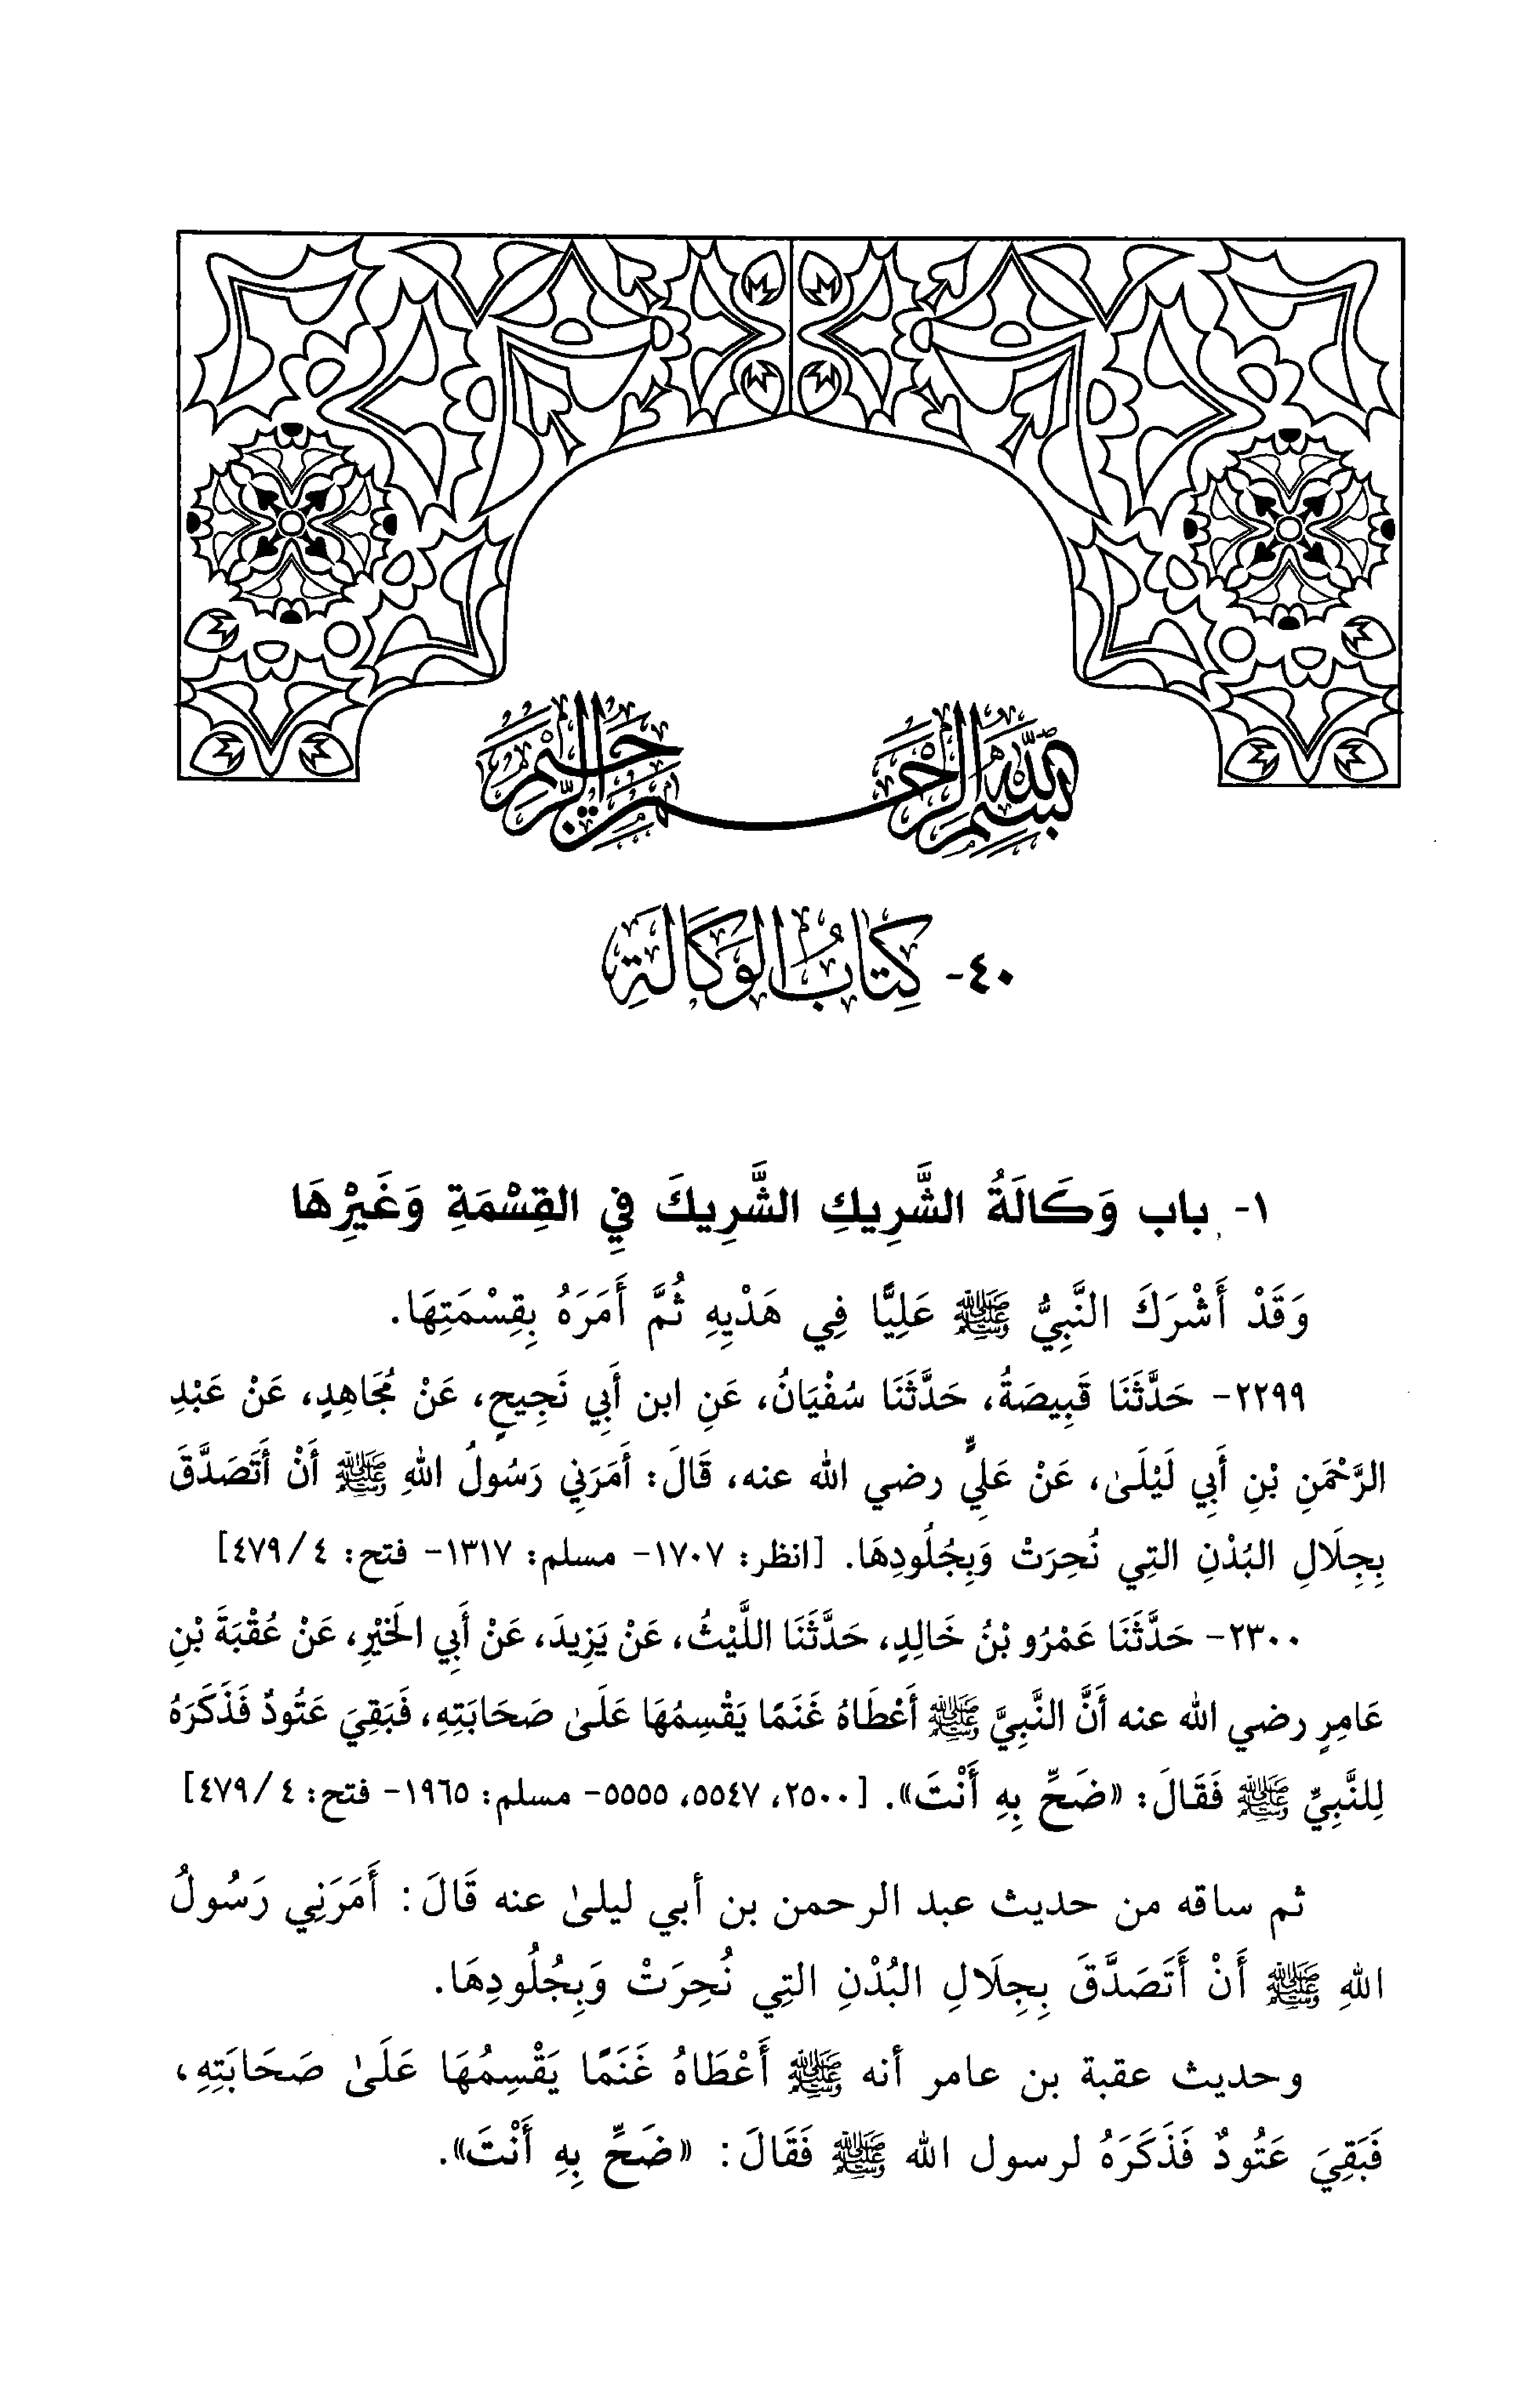 بسم الله الرحمن الرحيم
٤٠- كِتَابُ الوَكَالَةِ
١- باب وَكَالَةُ الشَّرِيكِ الشَّرِيكَ فِي القِسْمَةِ وَغَيْرِهَا
وَقَدْ أَشْرَكَ النَّبِيُّ ﷺ عَلِيًّا فِي هَدْيِهِ ثُمَّ أَمَرَهُ بِقِسْمَتِهَا.
٢٢٩٩- حَدَّثَنَا قَبِيصَةُ، حَدَّثَنَا سُفْيَانُ، عَنِ ابن أَبِي نَجِيحٍ، عَنْ مُجَاهِدٍ، عَنْ عَبْدِ
الرَّحْمَنِ بْنِ أَبِي لَيْلَىٰ، عَنْ عَلِيٍّ رضي الله عنه، قَالَ: أَمَرَنِي رَسُولُ اللهِ ﷺ أَنْ أَتَصَدَّقَ
بِجِلَالِ البُدْنِ التِي نُحِرَتْ وَبِجُلُودِهَا. [انظر: ١٧٠٧- مسلم: ١٣١٧- فتح: ٤/ ٤٧٩]
٢٣٠٠- حَدَّثَنَا عَمْرُو بْنُ خَالِدٍ، حَدَّثَنَا اللَّيْثُ، عَنْ يَزِيدَ، عَنْ أَبِي الخَيْرِ، عَنْ عُقْبَةَ بْنِ
عَامِرٍ رضي الله عنه أَنَّ النَّبِيَّ ﷺ أَعْطَاهُ غَنَمًا يَقْسِمُهَا عَلَىٰ صَحَابَتِهِ، فَبَقِيَ عَتُودٌ فَذَكَرَهُ
لِلنَّبِيِّ ﷺ فَقَالَ: «ضَحِّ بِهِ أَنْتَ». [٢٥٠٠، ٥٥٤٧، ٥٥٥٥- مسلم: ١٩٦٥- فتح: ٤ /٤٧٩]
ثم ساقه من حديث عبد الرحمن بن أبي ليلىٰ عنه قَالَ: أَمَرَنِي رَسُولُ
اللهِ ﷺ أَنْ أَتَصَدَّقَ بِجِلَالِ البُدْنِ التِي نُحِرَتْ وَبِجُلُودِهَا.
وحديث عقبة بن عامر أنه ﷺ أَعْطَاهُ غَنَمًا يَقْسِمُهَا عَلَىٰ صَحَابَتِهِ،
فَبَقِيَ عَتُودٌ فَذَكَرَهُ لرسول الله ﷺ فَقَالَ: «ضَحِّ بِهِ أَنْتَ».